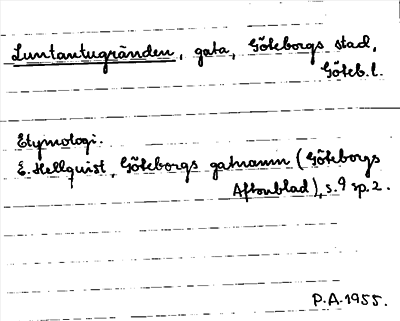 Luntantugränden, gata, Göteborgs stad,
Göteb.l.
Etymologi.
E. Hellquist, Göteborgs gatnamn (Göteborgs
Aftonblad), s. 9 sp. 2.
P.A. 1955.